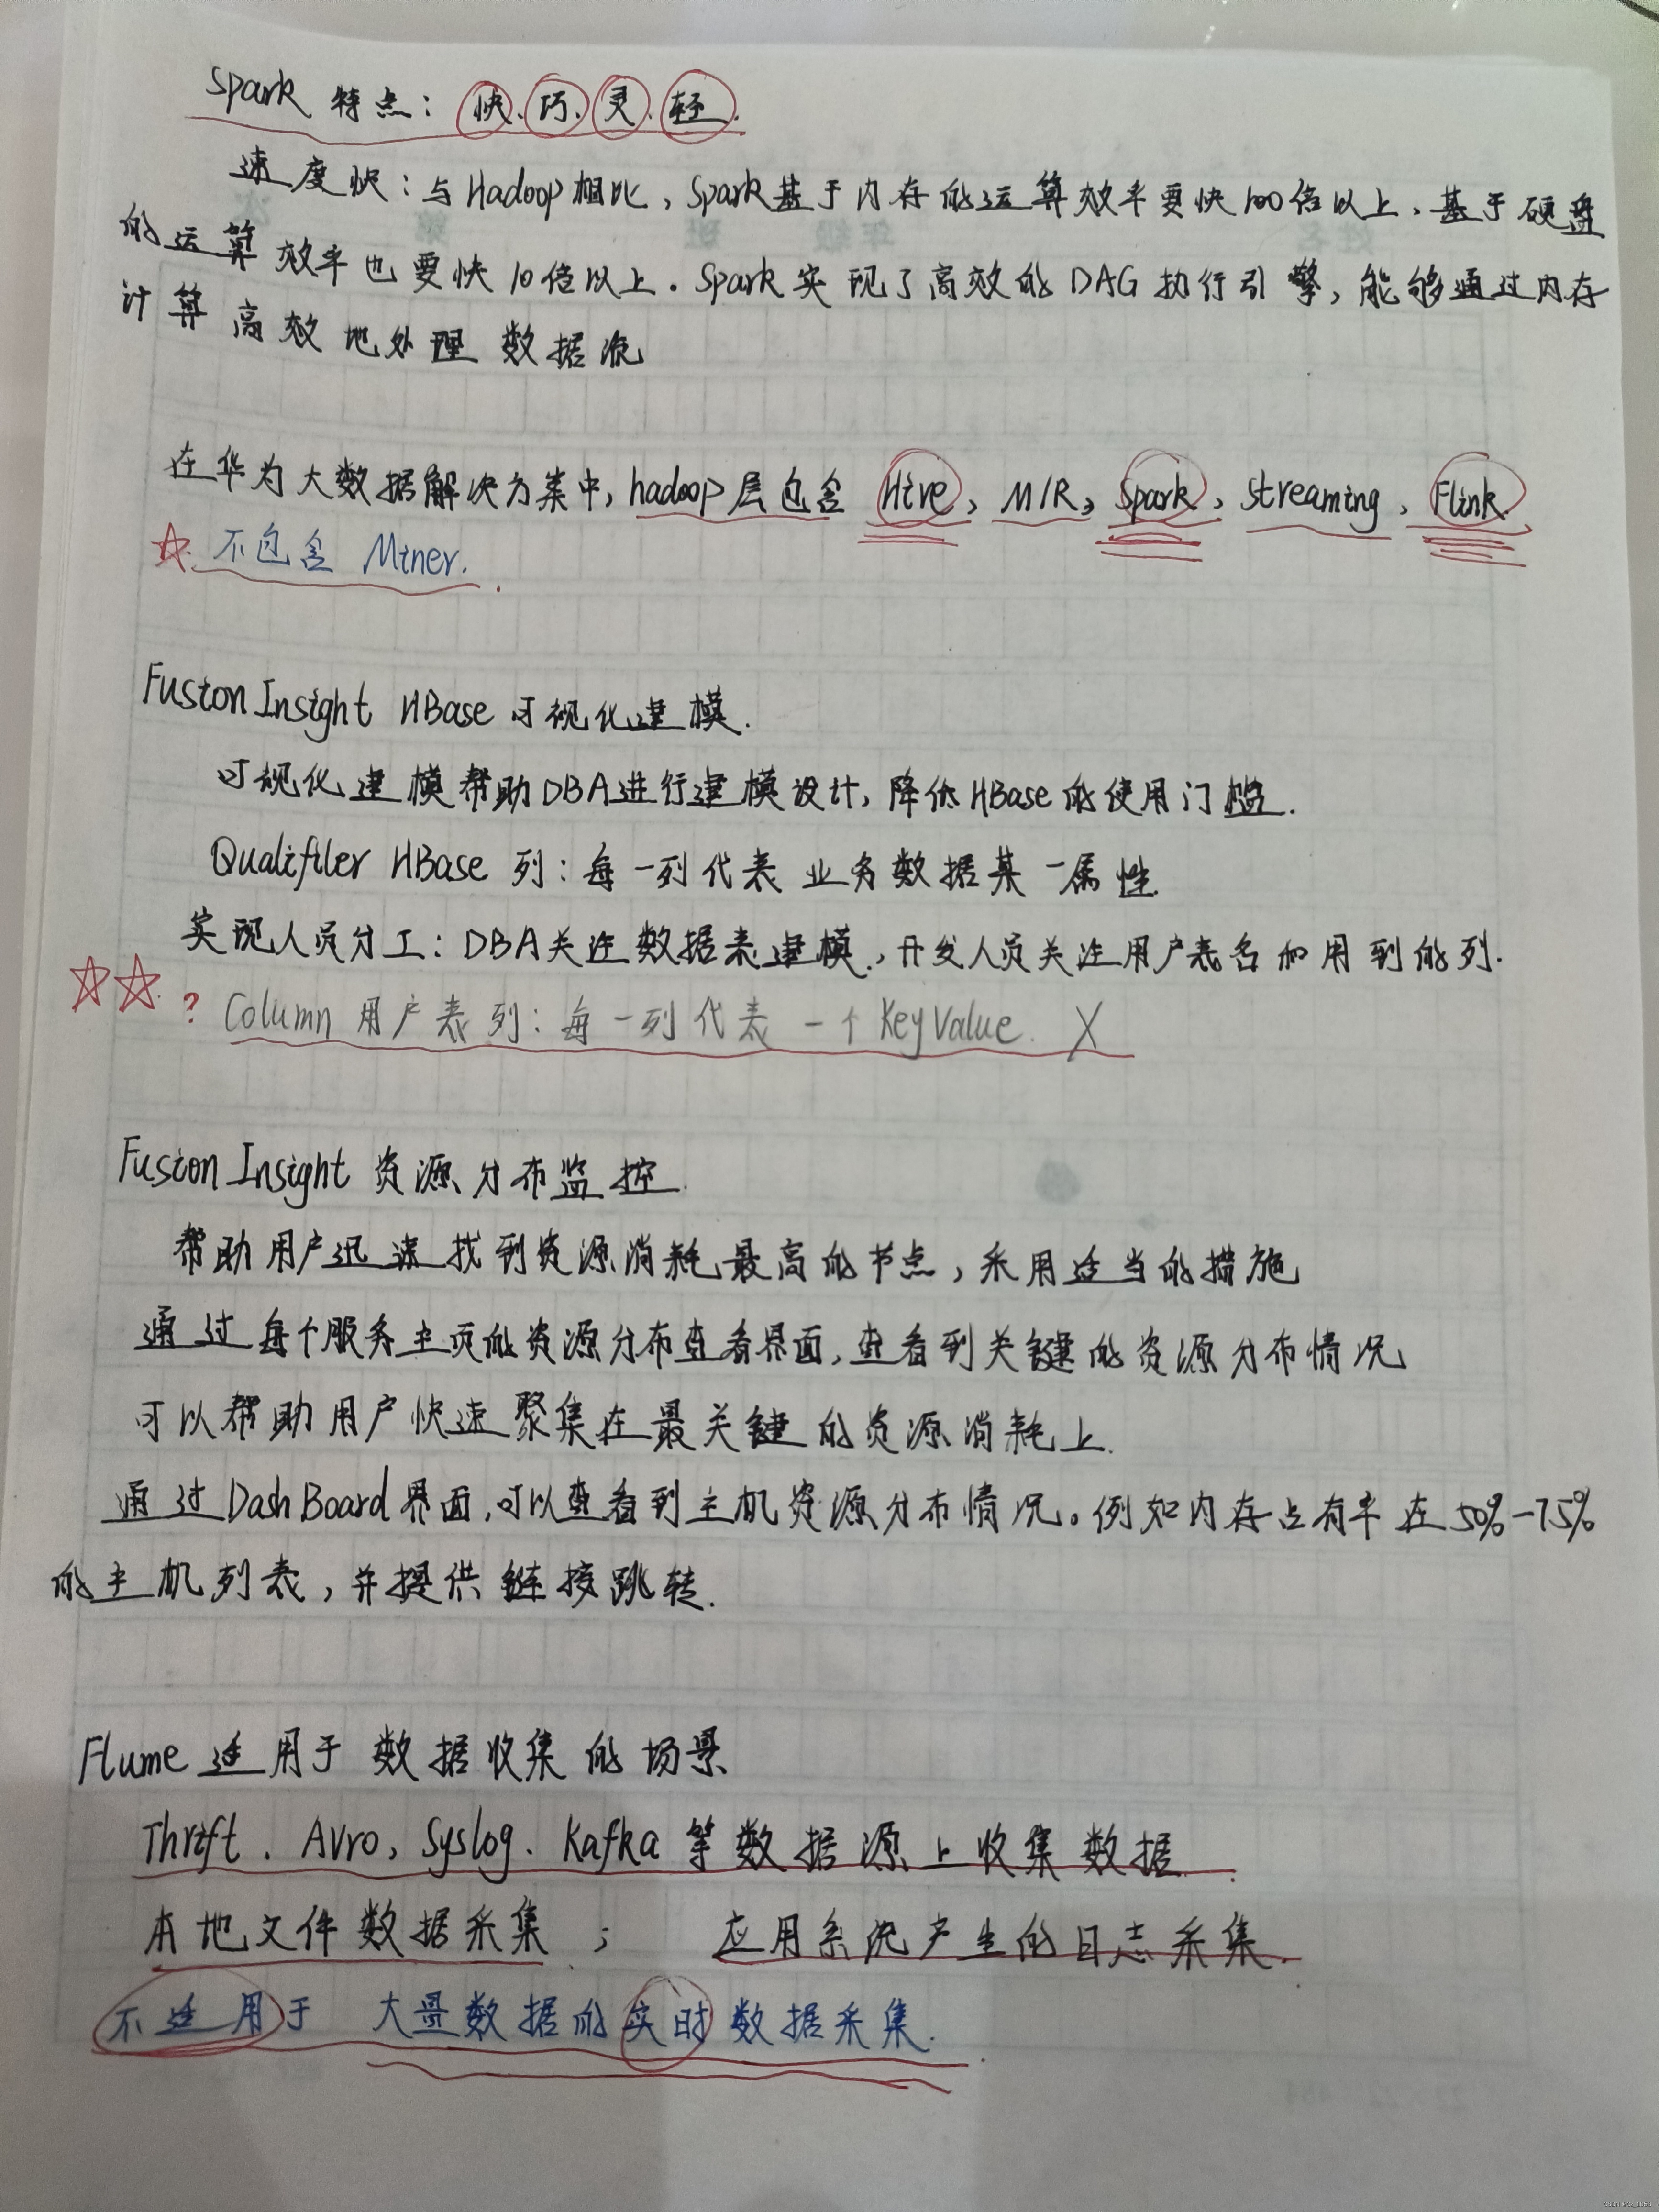 Spark 特点：快、巧、灵、轻.
速度快：与Hadoop相比，Spark基于内存的运算效率要快100倍以上、基于硬盘
的运算效率也要快10倍以上。Spark实现了高效的DAG执行引擎，能够通过内存
计算高效地处理数据流
在华为大数据解决方案中，hadoop层包含 Hive，M/R，Spark，Streaming，Flink.
不包含 Miner.
Fusion Insight HBase 可视化建模.
可视化建模帮助DBA进行建模设计，降低HBase的使用门槛.
Qualifiler HBase 列：每一列代表业务数据某一属性.
实现人员分工：DBA关注数据表建模，开发人员关注用户表名和用到的列.
? Column 用户表列：每一列代表一个KeyValue. X
Fusion Insight 资源分布监控.
帮助用户迅速找到资源消耗最高的节点，采用适当的措施
通过每个服务主页的资源分布查看界面，查看到关键的资源分布情况
可以帮助用户快速聚集在最关键的资源消耗上.
通过DashBoard界面，可以查看到主机资源分布情况。例如内存占有率在50%-75%
的主机列表，并提供链接跳转.
Flume 适用于数据收集的场景
Thrift、Avro、Syslog、Kafka等数据源上收集数据.
本地文件数据采集； 应用系统产生的日志采集.
不适用于 大量数据的实时数据采集.